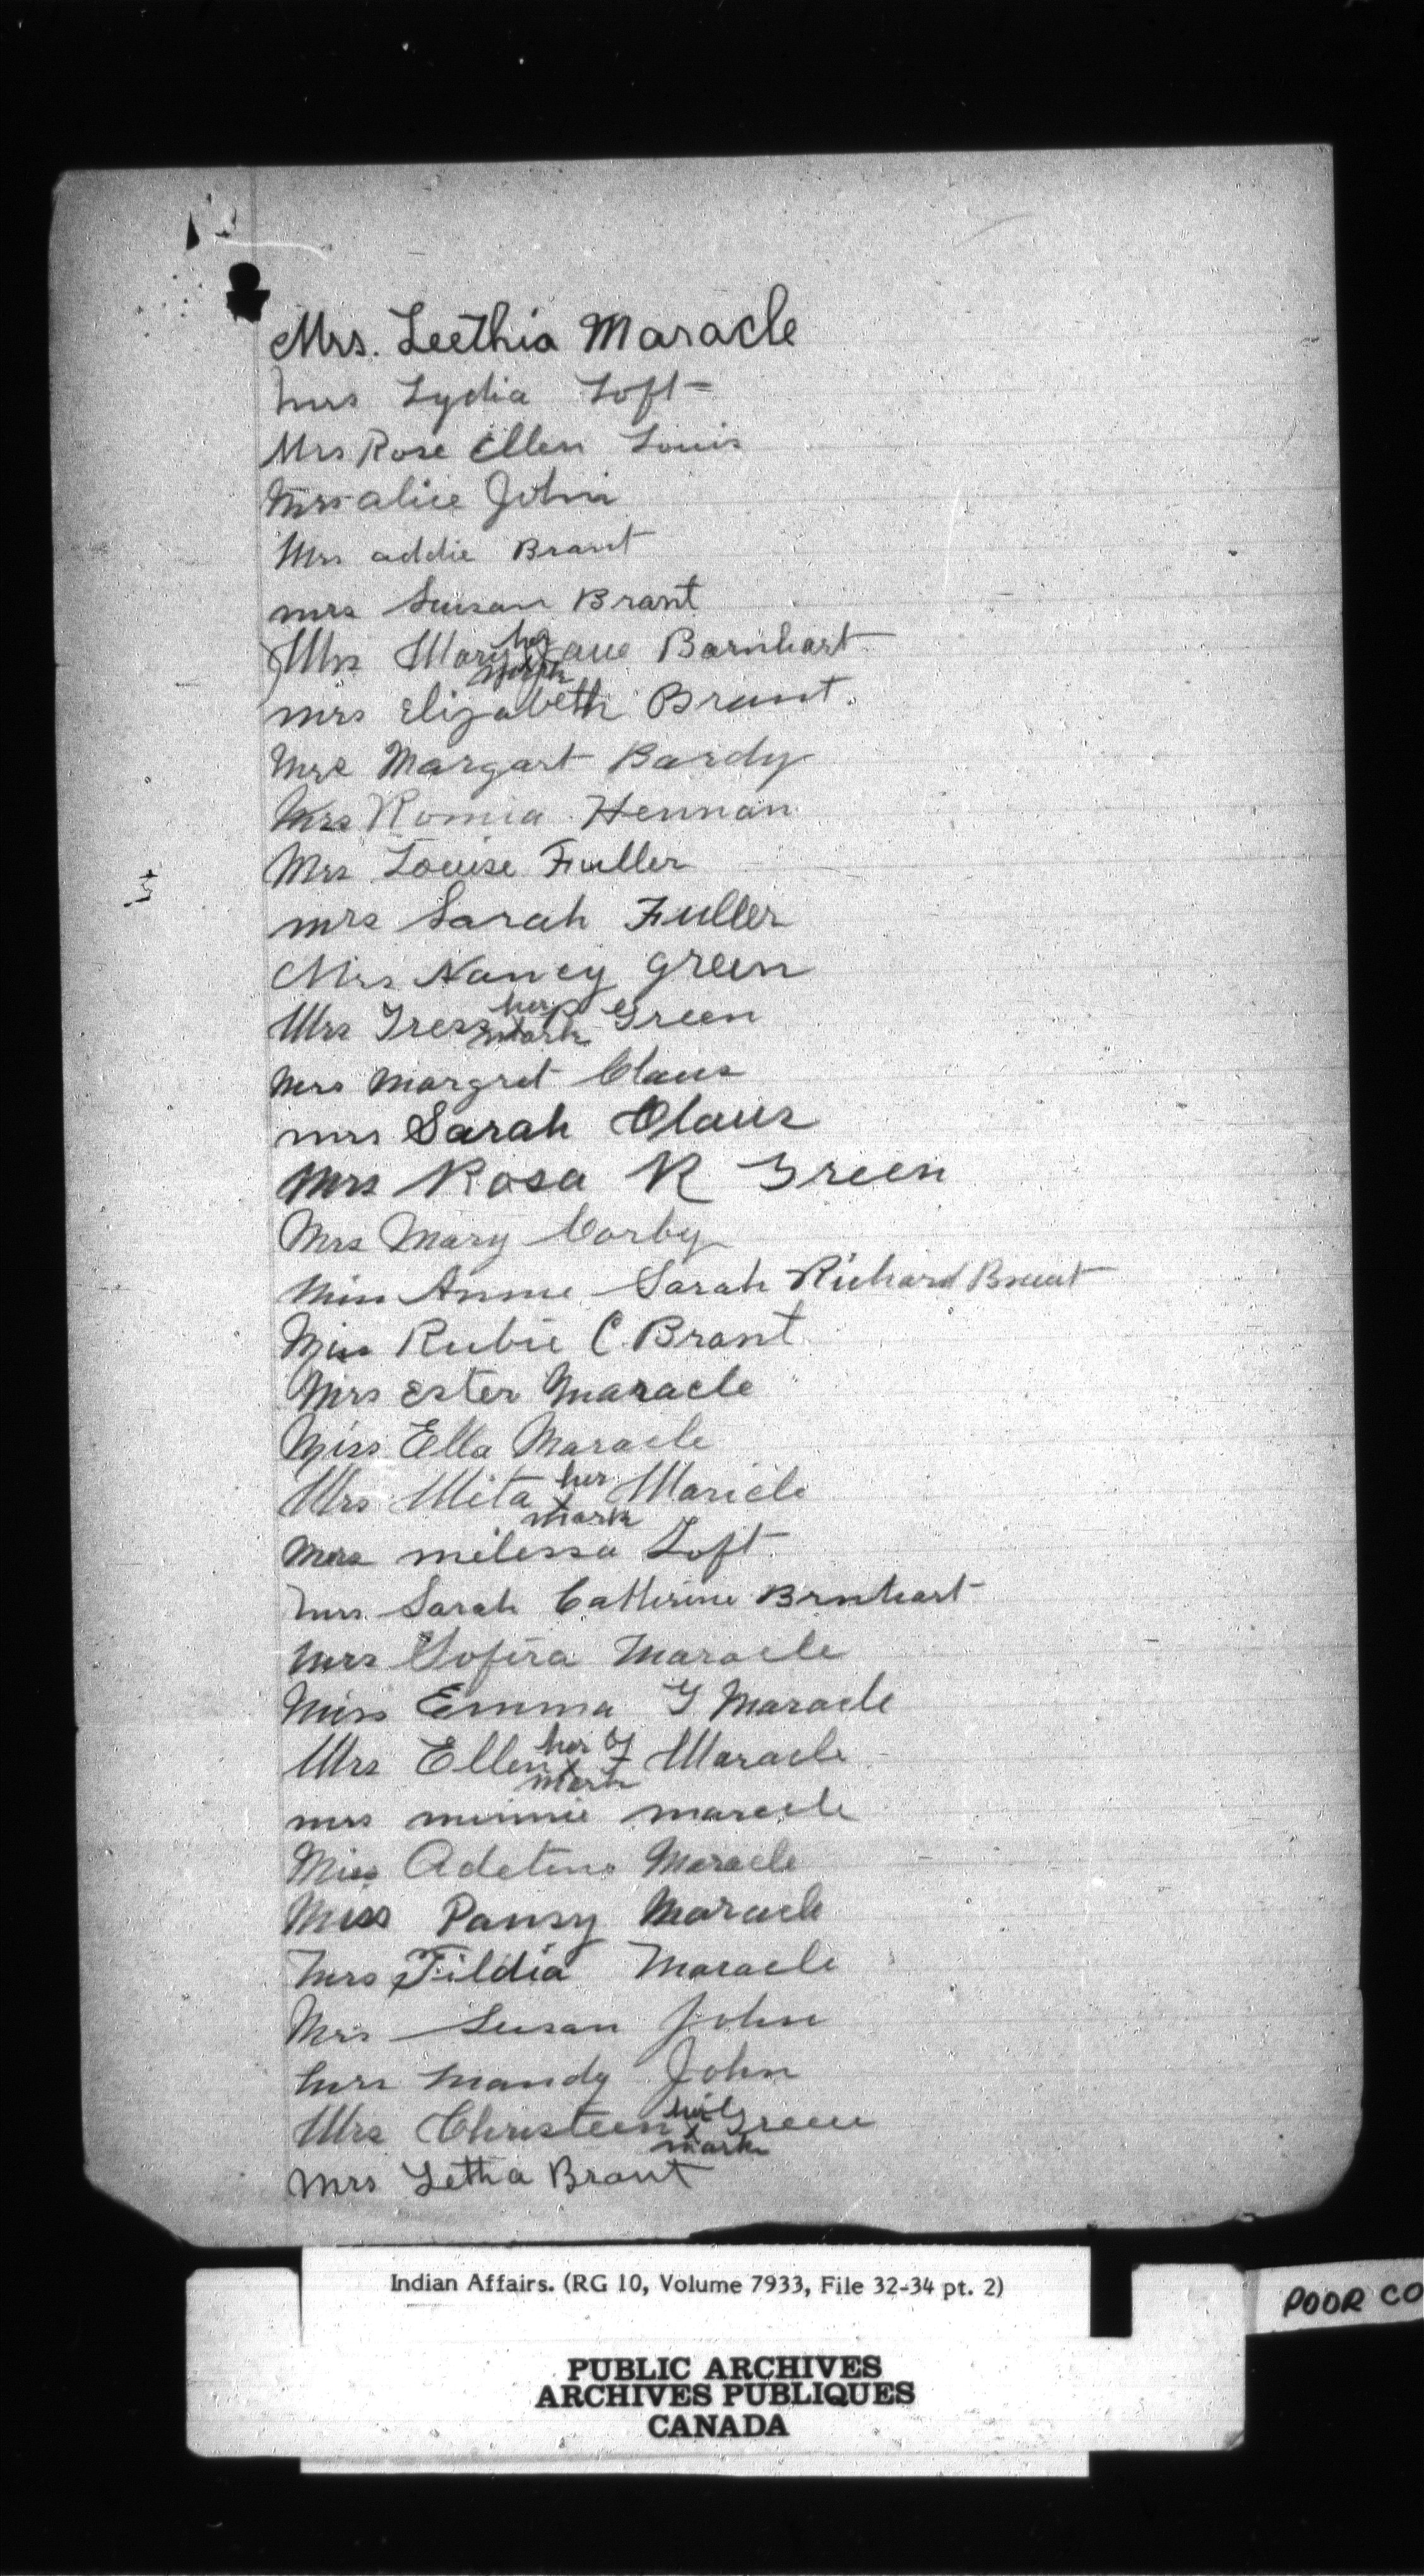 Mrs. Leethia Maracle
Mrs Lydia Loft
Mrs Rose Ellen Louis
Mrs alice John
Mrs addie Brant
mrs Susan Brant
Mrs Mary her x mark Jane Barnhart
mrs Elizabeth Brant.
Mrs Margart Bardy
Mrs Romia Hennan
Mrs Louise Fuller
mrs Sarah Fuller
Mrs Nancy green
Mrs Tress her x mark P Green
Mrs Margret Claus
mrs Sarah Claus
Mrs Rosa R Green
Mrs Mary Corby
Miss Annie Sarah Richard Brant
Miss Rubie C. Brant
Mrs Ester Maracle
Miss Ella Maracle
Mrs Mita her x mark Maricle
Mrs milessa Loft
Mrs. Sarah Catherine Brnhart
Mrs Sofira Maracle
Miss Emma G Maracle
Mrs Ellen her x mark J Maracle
mrs minnie maracle
Miss Adeline Maracle
Miss Pansy Maracle
Mrs Tildia Maracle
Mrs Susan John
Mrs Mandy John
Mrs Christeen her x mark Green
Mrs Letha Brant
Indian Affairs. (RG 10, Volume 7933, File 32-34 pt. 2)
POOR CO
PUBLIC ARCHIVES
ARCHIVES PUBLIQUES
CANADA